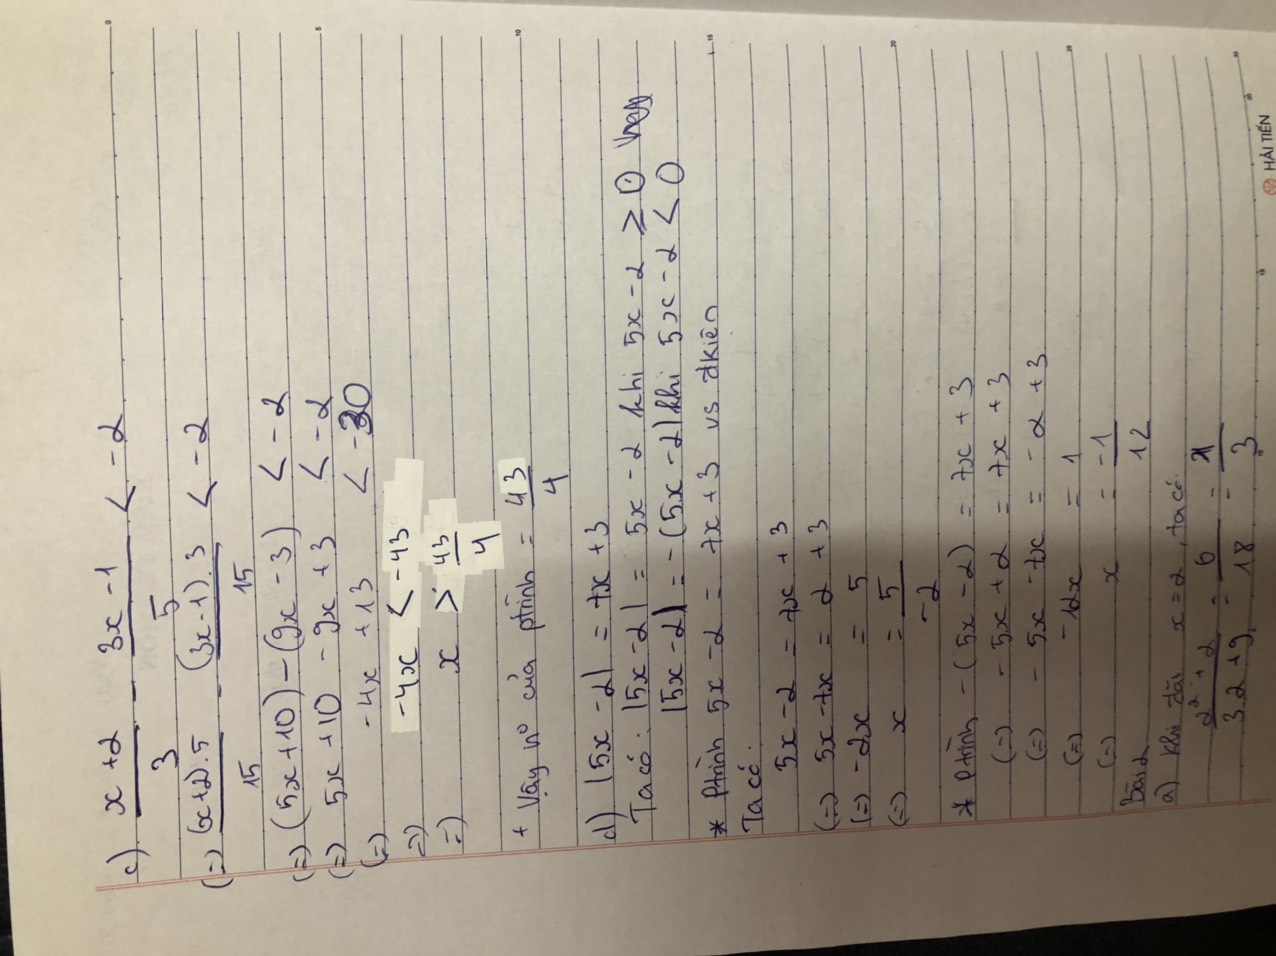 c) x+2 / 3 - 3x-1 / 5 < -2
(=) (x+2).5 / 15 - (3x-1).3 / 15 < -2
(=) (5x+10) - (9x-3) < -2
(=) 5x+10 - 9x+3 < -2
(=) -4x+13 < -30
=) -4x < -43
=) x > 43/4
+ Vậy n° của ptrình = 43/4
d) |5x-2| = 7x+3
Ta có: |5x-2| = 5x-2 khi 5x-2 ≥ 0 hay
|5x-2| = -(5x-2) khi 5x-2 < 0
* Ptrình 5x-2 = 7x+3 vs đkiện
Ta có:
5x-2 = 7x+3
(=) 5x-7x = 2+3
(=) -2x = 5
(=) x = 5/-2
* Ptrình -(5x-2) = 7x+3
(=) -5x+2 = 7x+3
(=) -5x-7x = -2+3
(=) -12x = 1
(=) x = -1/12
Bài 2
a) Khi đã x=2, ta có:
2²+2 / 3.2+9 = 6 / 18 = 1 / 3
HẢI TIẾN